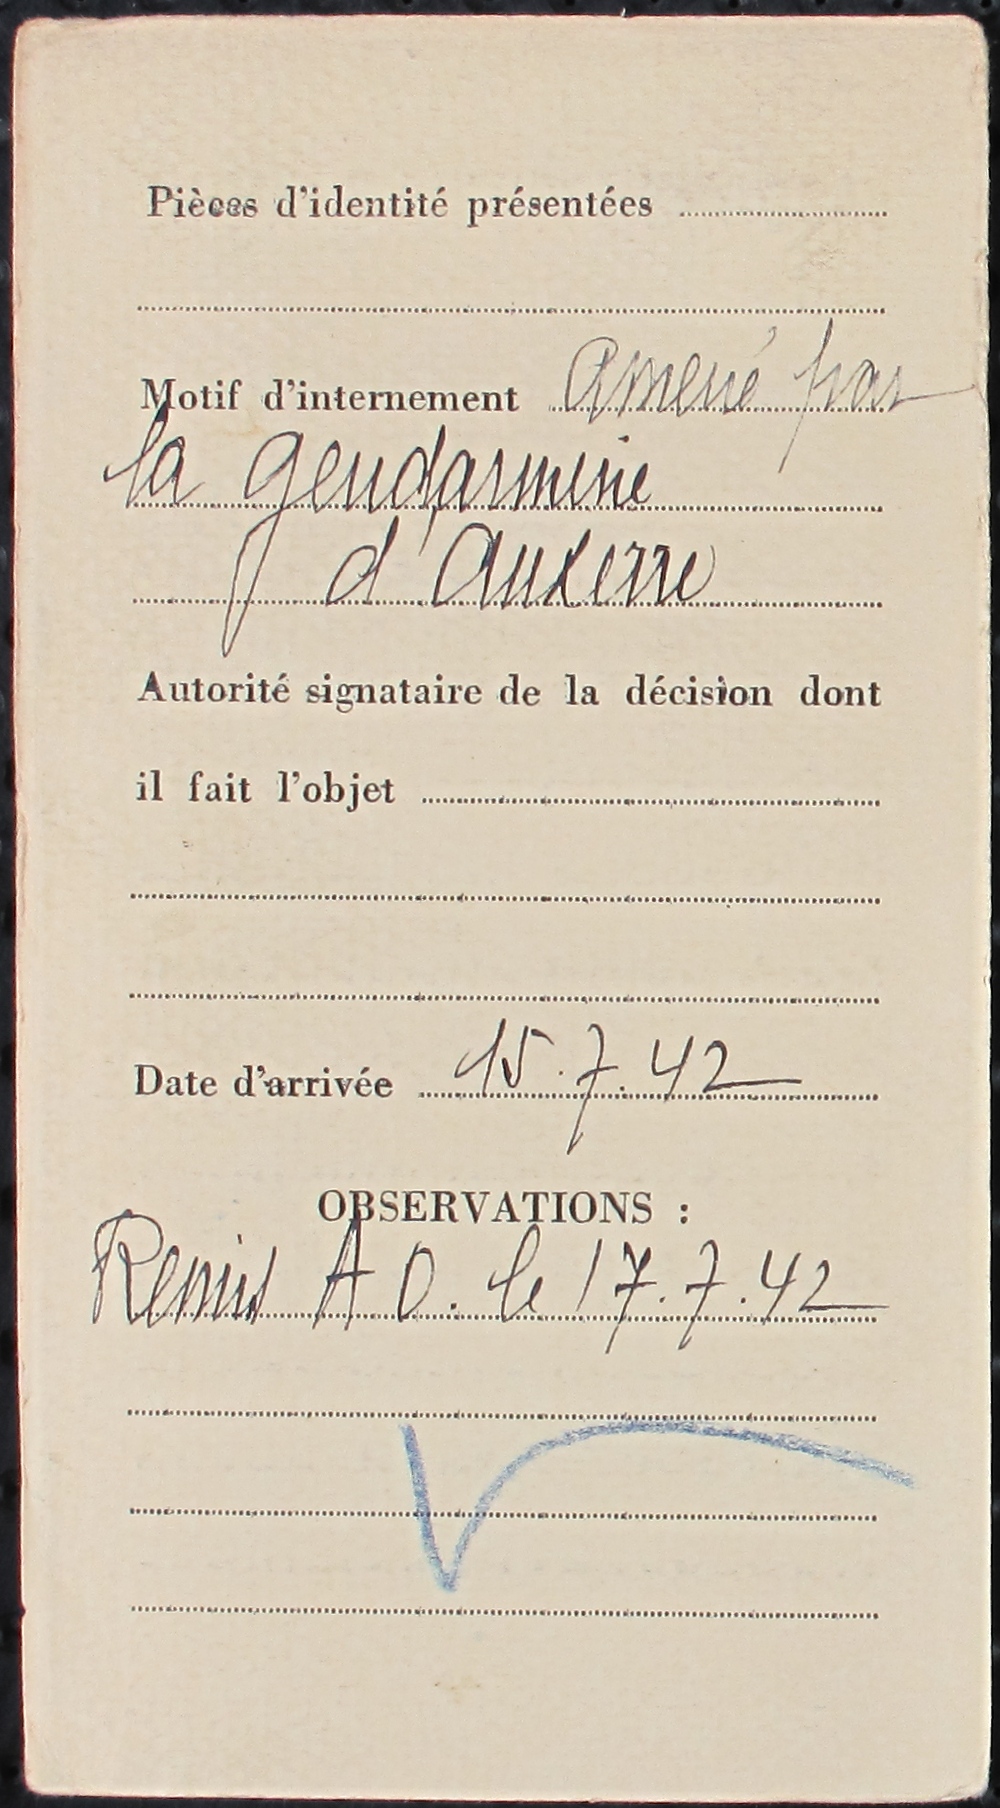 Pièces d'identité présentées
Motif d'internement amené par
la gendarmerie
d'Auxerre
Autorité signataire de la décision dont
il fait l'objet
Date d'arrivée 15.7.42
OBSERVATIONS :
Remis A O. le 17.7.42